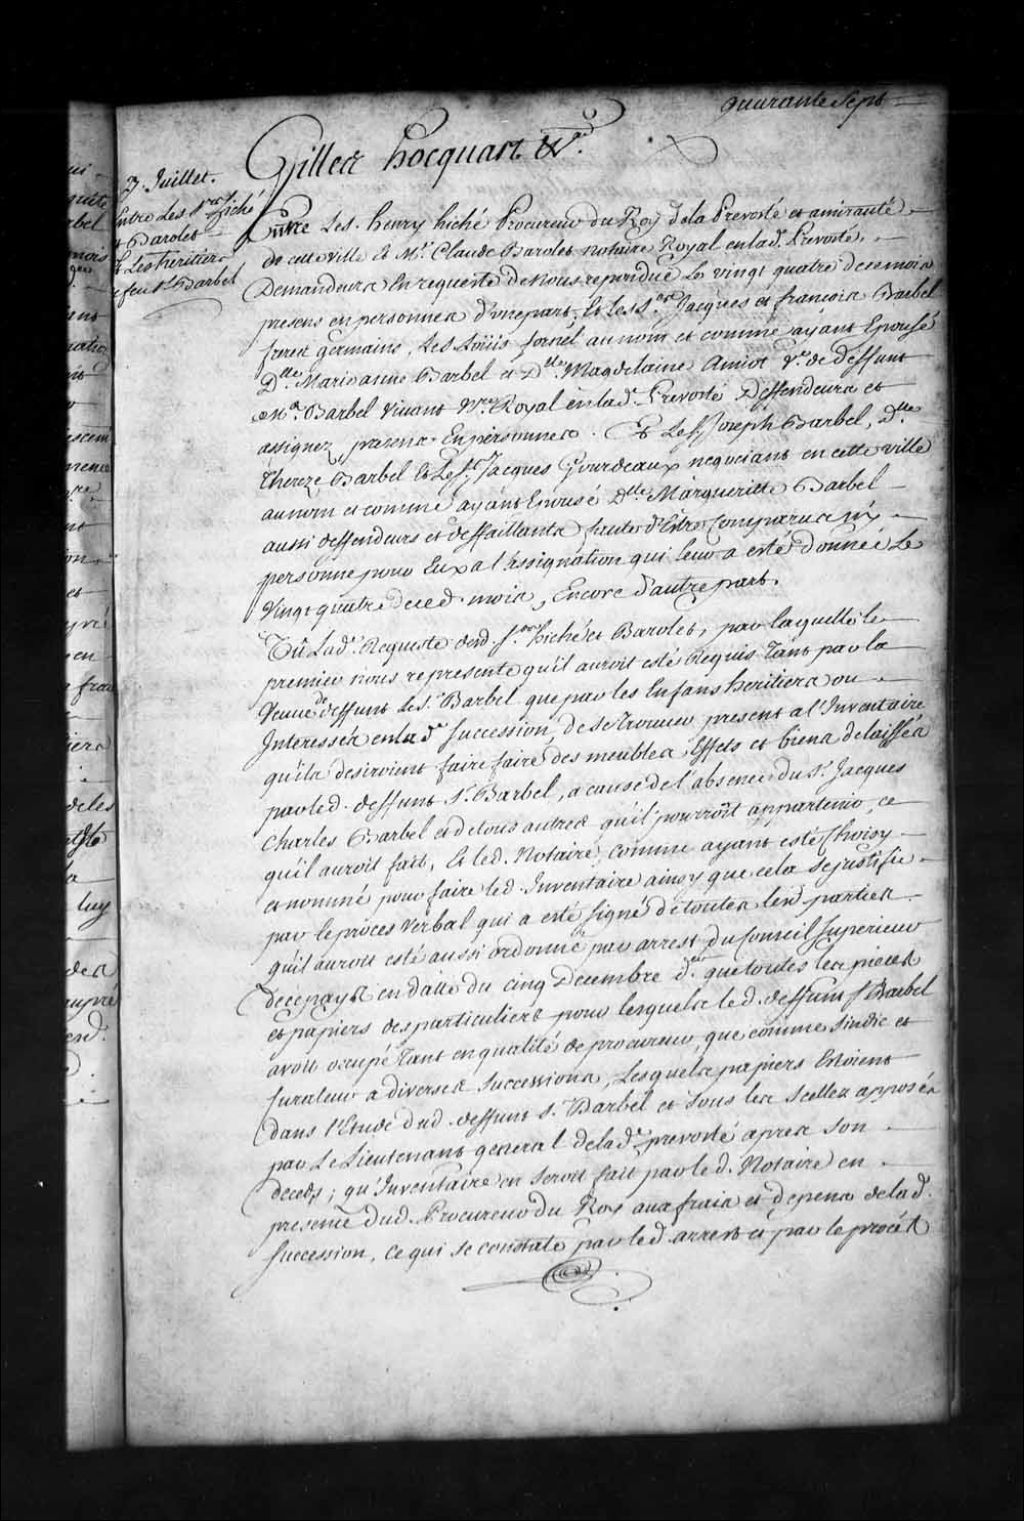 quarante sept
Gilles hocquart &ca.
7. Juillet.
Entre Les Srs hiché
et Barolet
Et Les heritiers
de feu Sr. Barbel
Entre Le S. henry hiché Procureur du Roy de la Prevosté et amirauté
de cette ville Et Me. Claude Barolet notaire Royal en lad. Prevosté,
Demandeurs En requeste de Nous repondüe Le vingt quatre de ce mois
presens en personnes d'une part, Et les Srs. Jacques et francois Barbel
freres germains, Le S. Loüis fornel au nom et comme ayant Epousé
Dlle. Marianne Barbel et Dlle. Magdelaine Amiot Ve. de deffunt
Me. Barbel Vivant Nre. Royal en lad. Prevosté Deffendeurs et
assignez, presens En personnes. Et Le S. Joseph Barbel, Dlle.
Thereze Barbel Et Le S. Jacques Gourdeaux negociant en cette ville
au nom et comme ayant Epousé Dlle. Margueritte Barbel
aussi deffendeurs et deffaillants faute d'Estre Comparus ny
personne pour Eux a l'assignation qui leur a esté donnée Le
Vingt quatre de ce d. mois, Encore d'autre part.
Vû Lad. Requeste desd. Srs. hiché et Barolet, par laquelle le
premier nous represente qu'il auroit esté Requis Tant par la
Veuve de deffunt Le S. Barbel que par les Enfans heritiers ou
Interessés en lade. succession, de se trouver present a l'Inventaire
qu'ils desiroient faire faire des meubles Effets et biens delaissés
par led. deffunt Sr. Barbel, a cause de l'absence du Sr. Jacques
Charles Barbel et de tous autres qu'il pourroit appartenir, ce
qu'il auroit fait, Et led. Notaire, comme ayant esté Choisy
et nommé pour faire led. Inventaire ainsy que cela se justifie
par le procès verbal qui a esté signé de toutes lesd parties
qu'il auroit esté aussi ordonné par arrest du Conseil Superieur
de ce pays en datte du cinq Decembre der. que toutes les pieces
et papiers des particuliers pour lesquels led. deffunt Sr Barbel
avoit ocupé Tant en qualité de procureur, que comme sindic et
Curateur a diverses successions, Lesquels papiers Estoient
dans l'Etude dud. deffunt S. Barbel et sous les scellez apposés
par Le Lieutenant general de lade. prevosté apres son
deceds; qu'Inventaire en seroit fait par led. Notaire en
presence dud. Procureur du Roy aux frais et depens de lad.
succession, ce qui se constate par led. arrest et par le procés